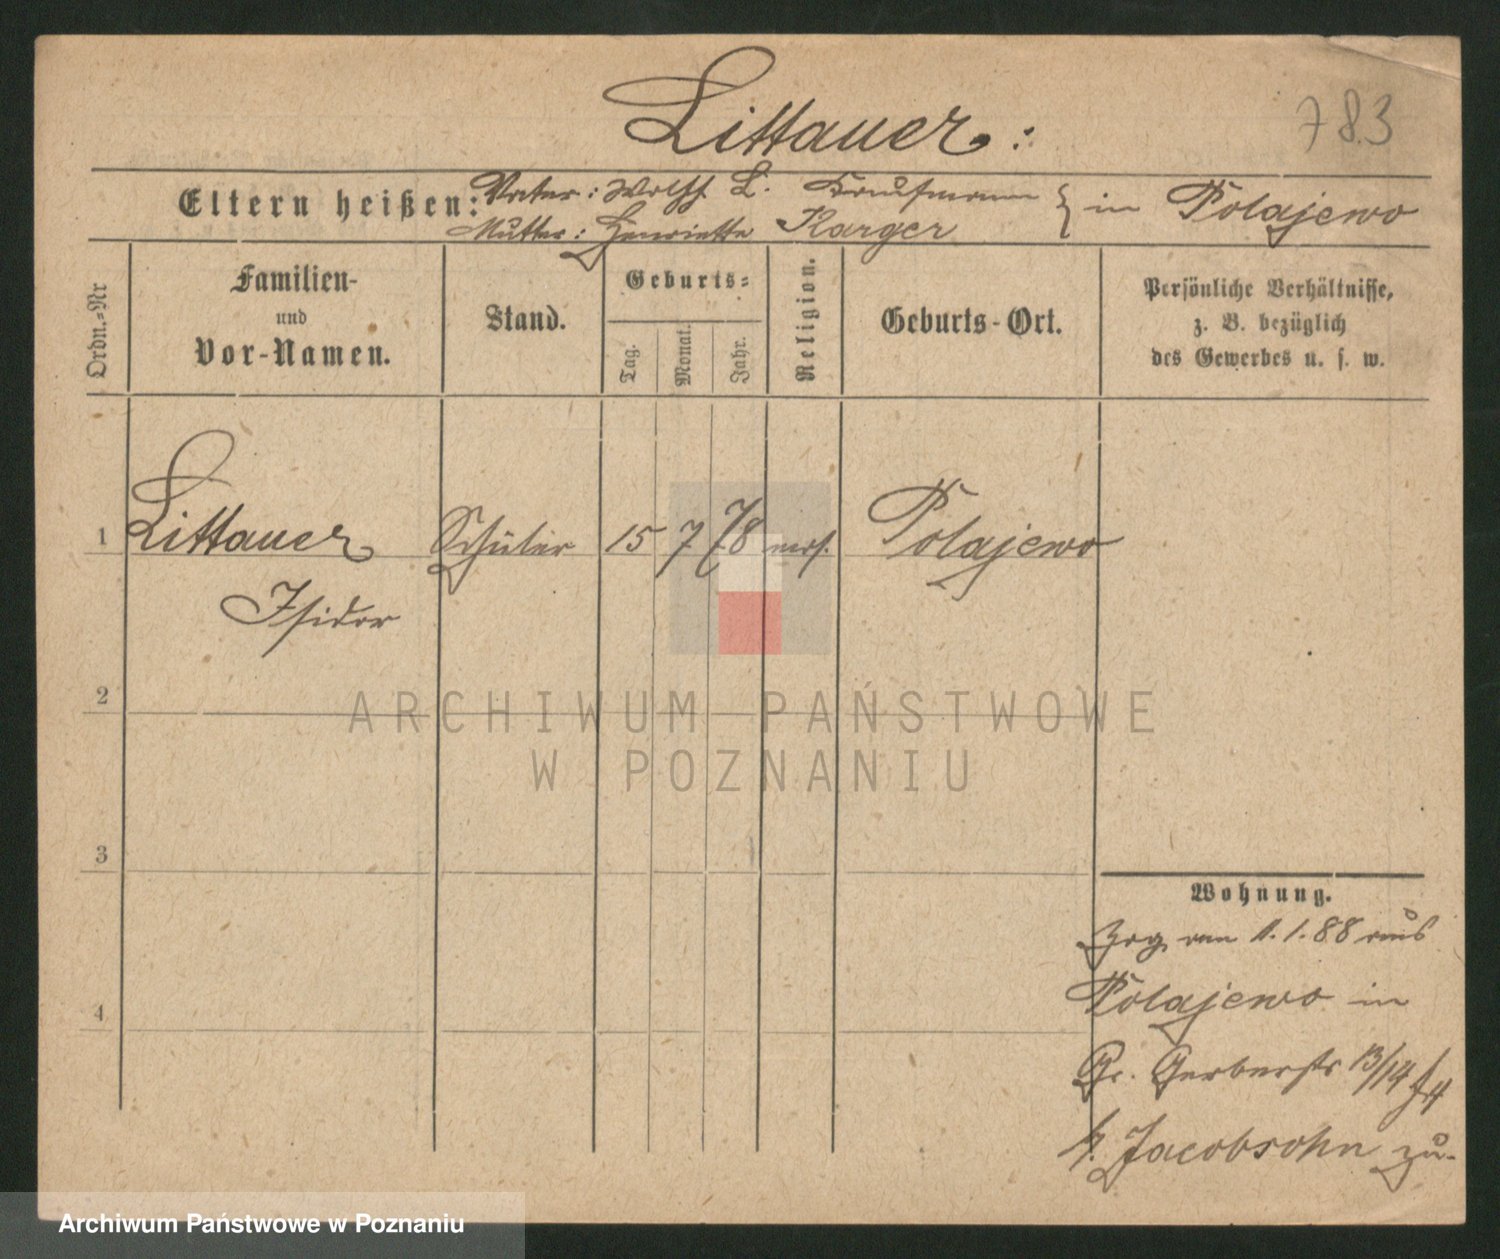 Littauer:
783
Eltern heißen: Vater: Wolff L. Kaufmann } in Polajewo
Mutter: Henriette Karger
Ordn.-Nr
Familien-
und
Vor-Namen.
Stand.
Geburts-
Tag.
Monat.
Jahr.
Religion.
Geburts-Ort.
Persönliche Verhältnisse,
z. B. bezüglich
des Gewerbes u. s. w.
1 Littauer Schüler 15 7 78 mos. Polajewo
Isidor
2
3
4
Wohnung.
Zog am 11.1.88 aus
Polajewo in
Gr. Gerberstr 13/14
b. Jacobsohn zu.
ARCHIWUM PAŃSTWOWE
W POZNANIU
Archiwum Państwowe w Poznaniu